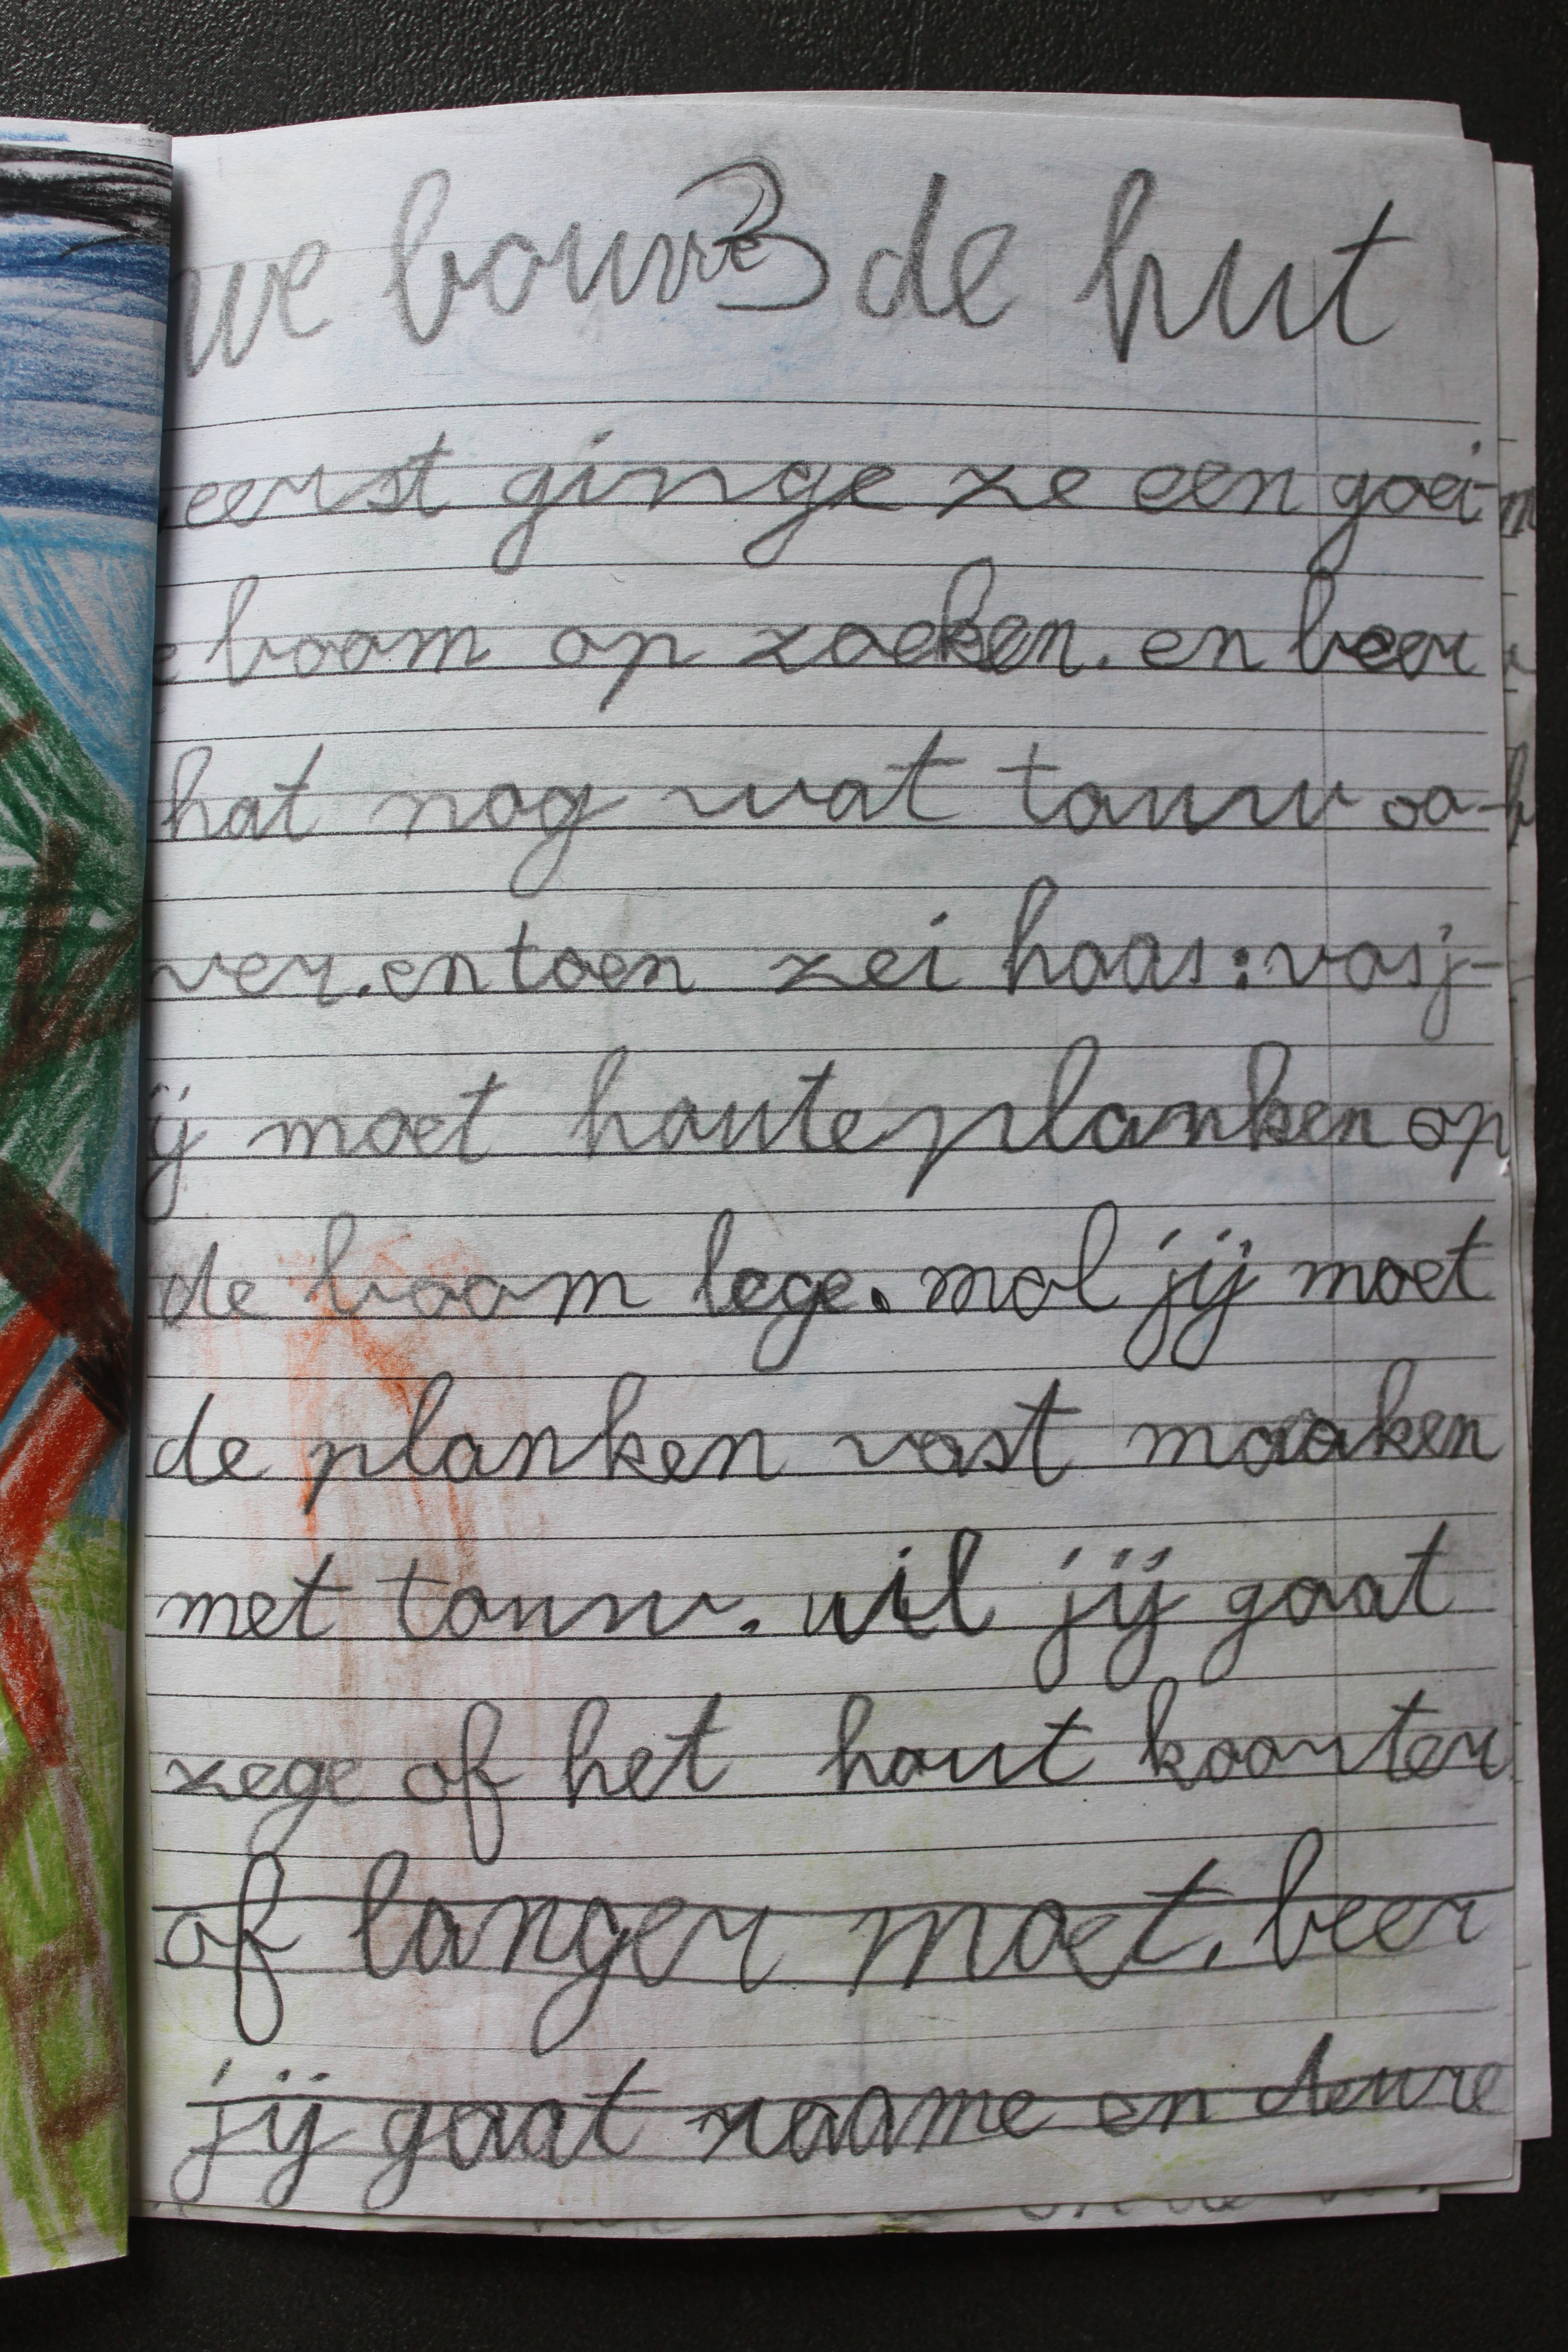 we bouwe 3 de hut
eerst ginge ze een goei-
e boom op zoeken. en beer
hat nog wat touw oo-
ver. en toen zei haas: vos j-
ij moet houte planken op
de boom lege. mol jij moet
de planken vast maaken
met touw. uil jij gaat
zege of het hout koorter
of langer moet. beer
jij gaat raame en deure